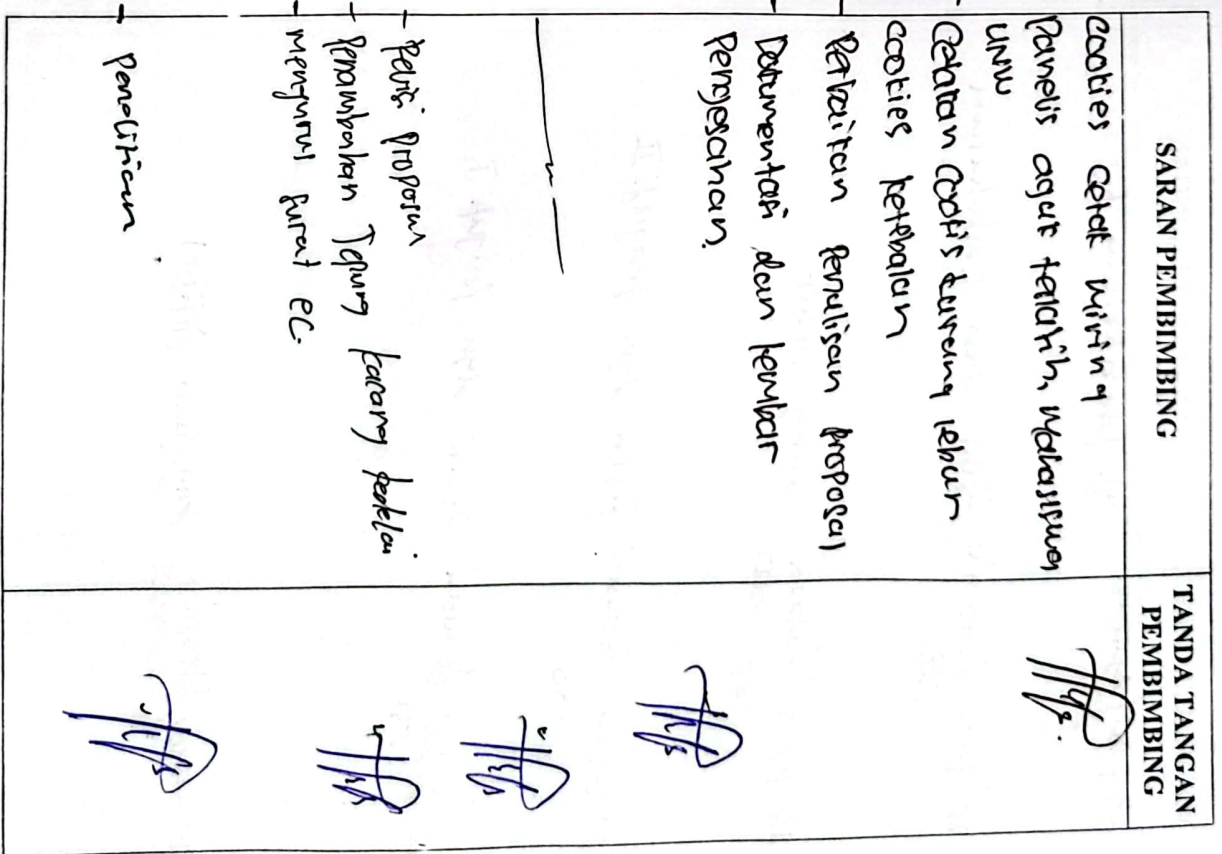 SARAN PEMBIMBING
TANDA TANGAN
PEMBIMBING
cookies cetak miring
Panelis agak terlatih, mahasiswa
UNW
Cetakan cookis kurang lebar
cookies ketebalan
- Perbaikan penulisan proposal
- Dokumentasi dan lembar
Pengesahan.
— " —
- Revisi proposal
- Penambahan Tepung kacang kedelai
- mengurus surat ec.
- Penelitian